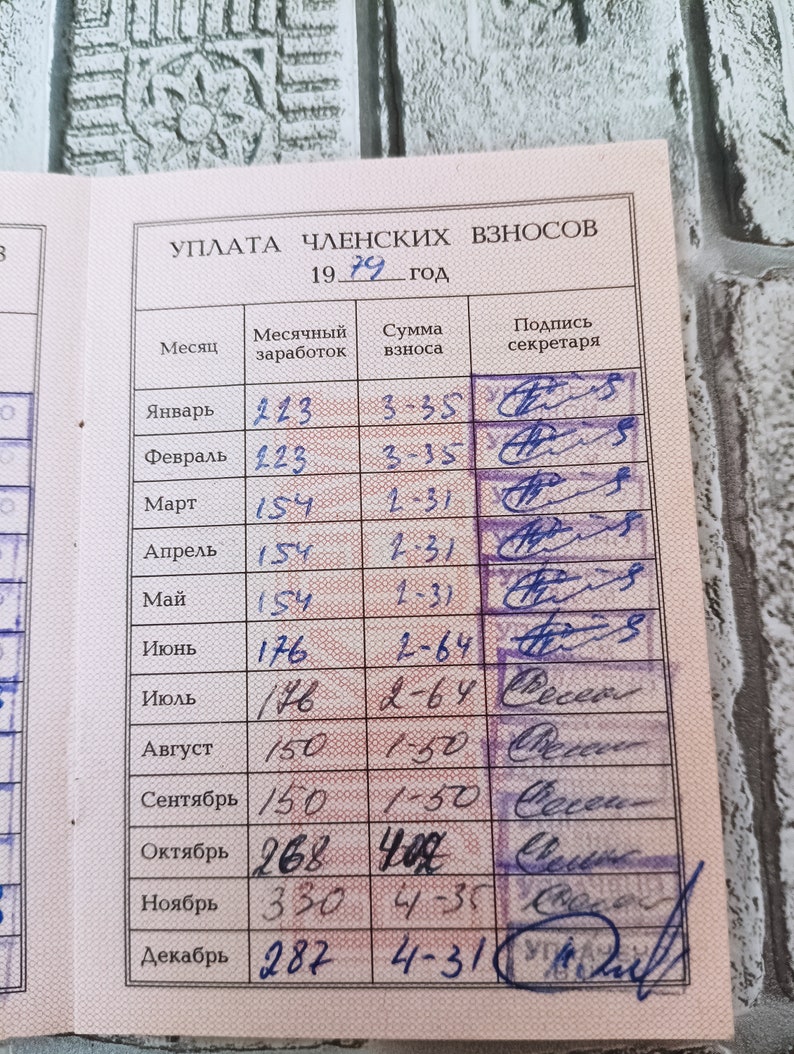 УПЛАТА ЧЛЕНСКИХ ВЗНОСОВ
1979 год
Месяц Месячный заработок Сумма взноса Подпись секретаря
Январь 223 3-35
Февраль 223 3-35
Март 154 2-31
Апрель 154 2-31
Май 154 2-31
Июнь 176 2-64
Июль 176 2-64
Август 150 1-50
Сентябрь 150 1-50
Октябрь 268
Ноябрь 330 4-35
Декабрь 287 4-31